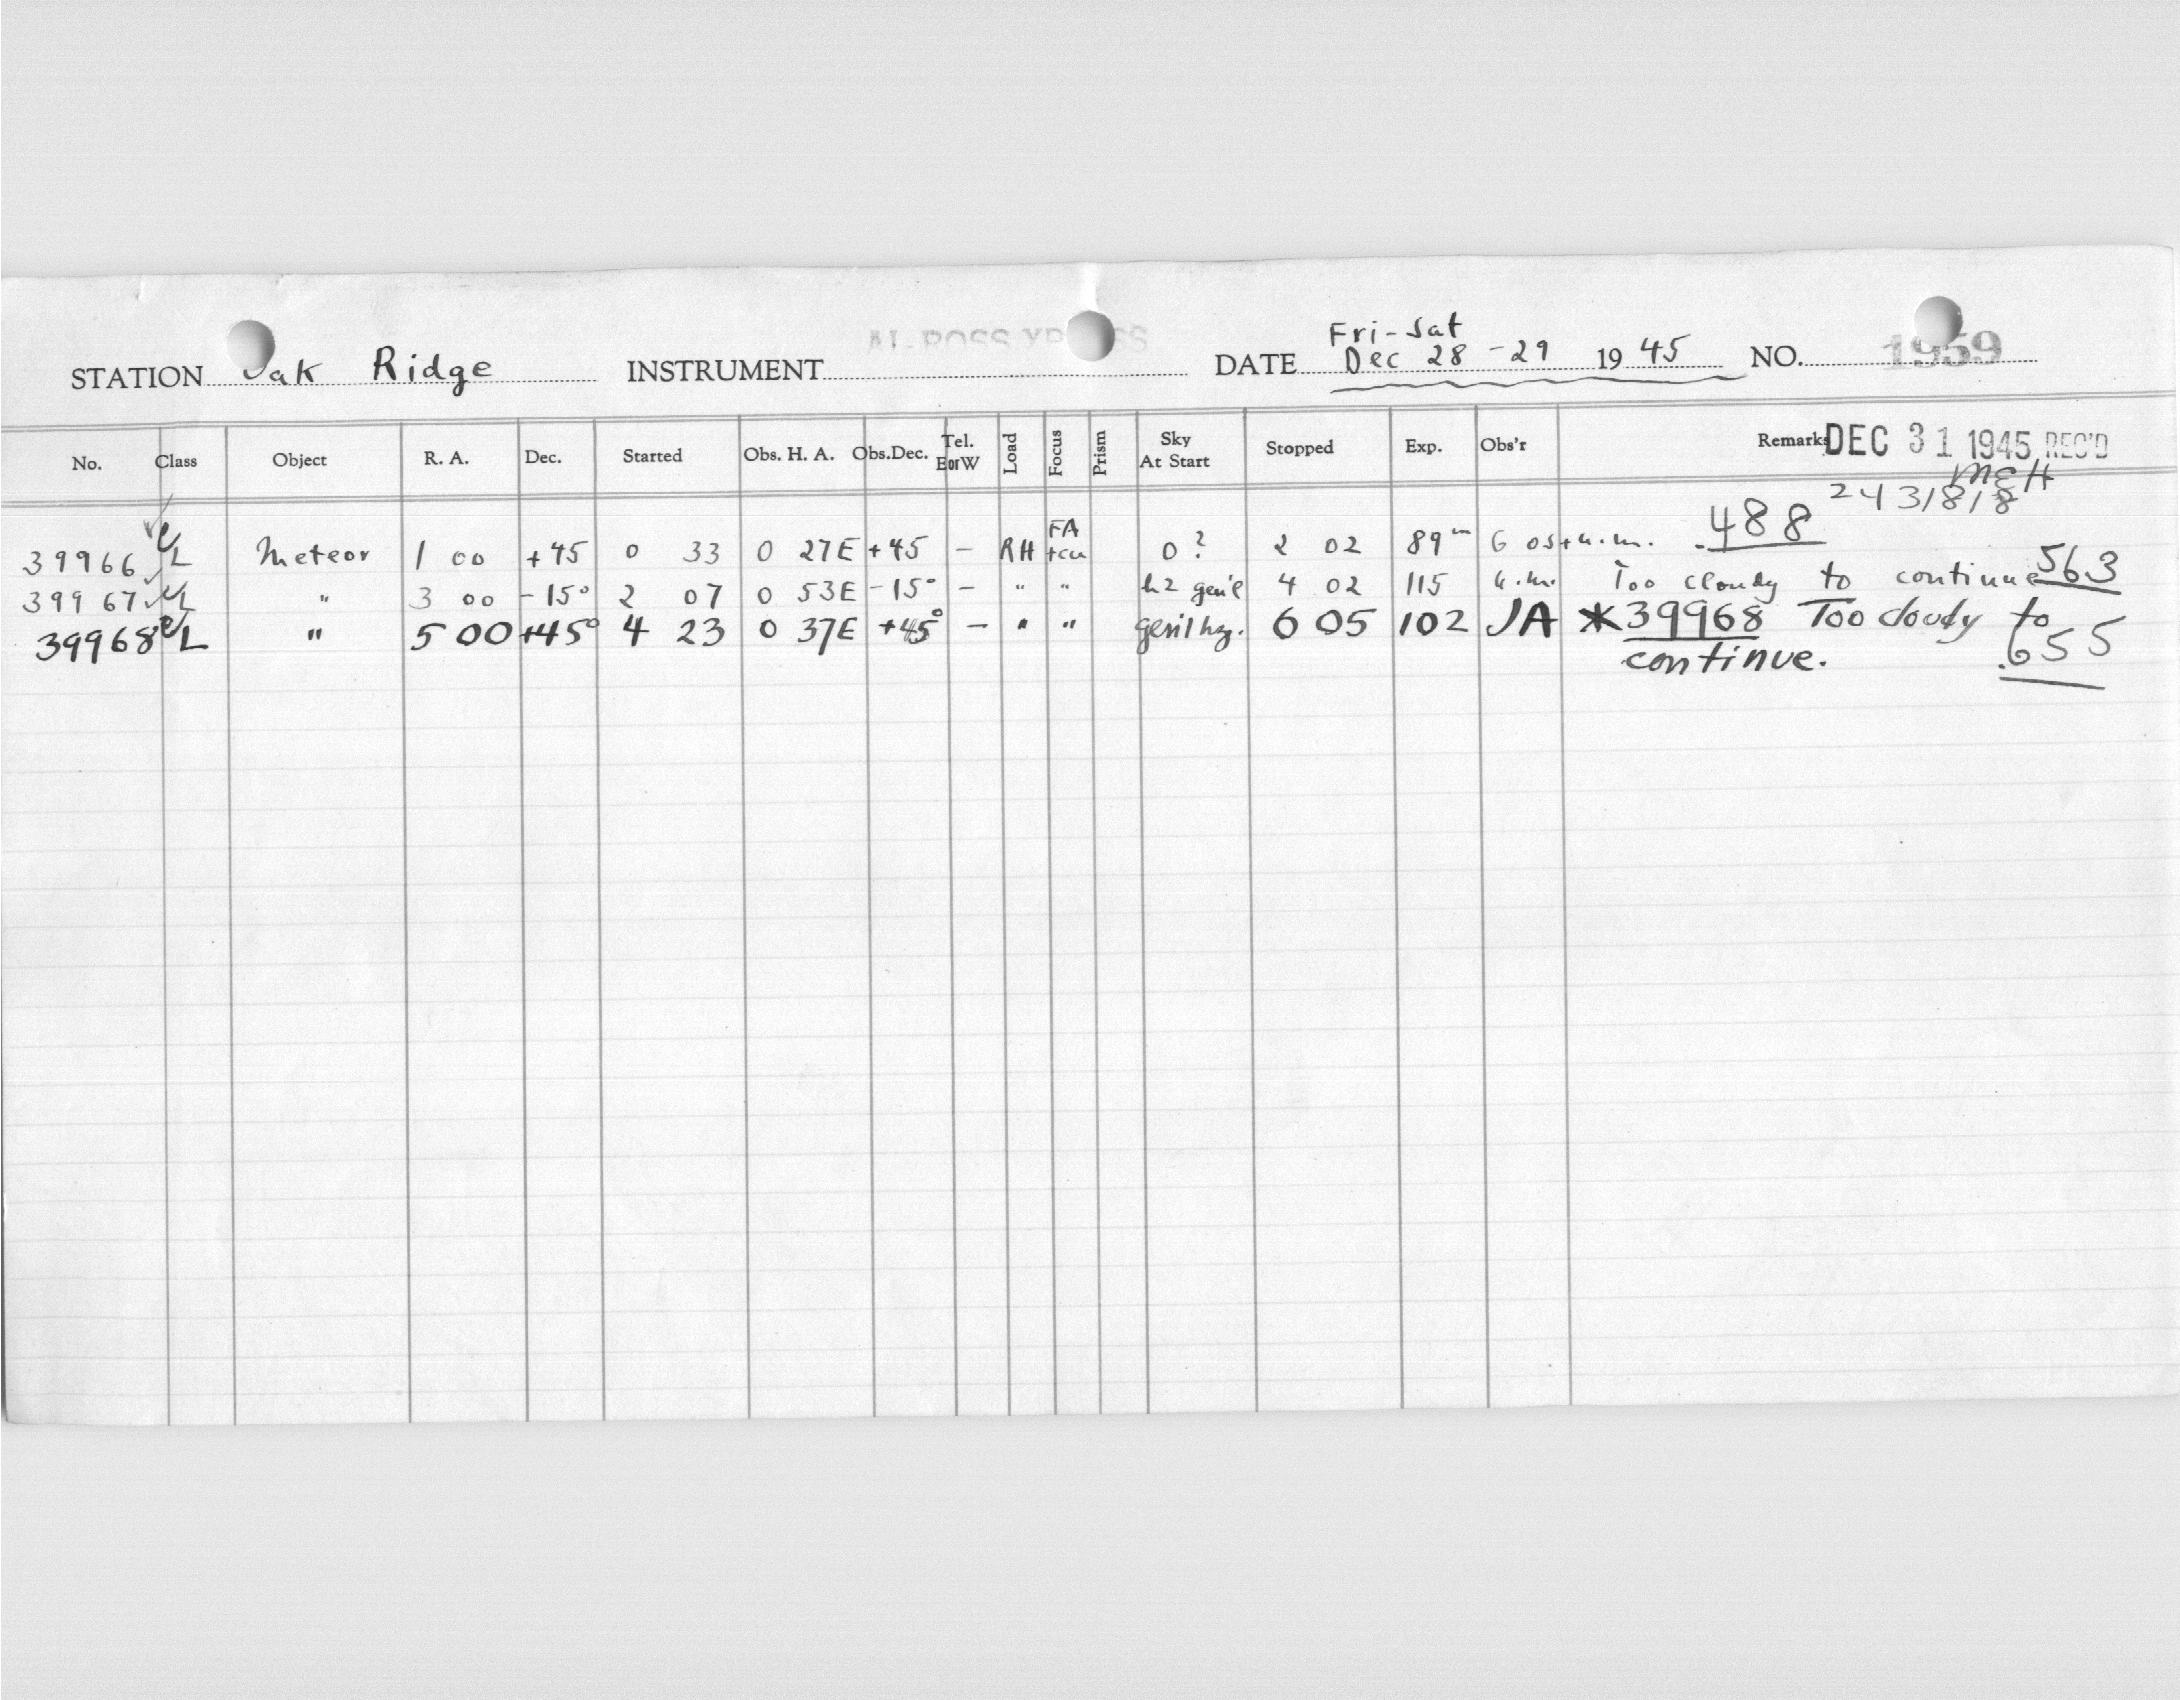 Fri-Sat
STATION Oak Ridge INSTRUMENT DATE Dec 28-29 1945 NO. 1959
No. Class Object R. A. Dec. Started Obs. H. A. Obs.Dec. Tel. EorW Load Focus Prism Sky At Start Stopped Exp. Obs'r Remarks DEC 31 1945 REC'D
MEH
243/8/8
39966 L Meteor 1 00 +45 0 33 0 27E +45 - RH FA 0? 2 02 89m .488
39967 L " 3 00 -15° 2 07 0 53E -15° - " " hz gen'l 4 02 115 Too cloudy to continue 563
39968 L " 5 00 +45° 4 23 0 37E +45° - " " gen'l hz. 6 05 102 JA *39968 Too cloudy to
continue. .655